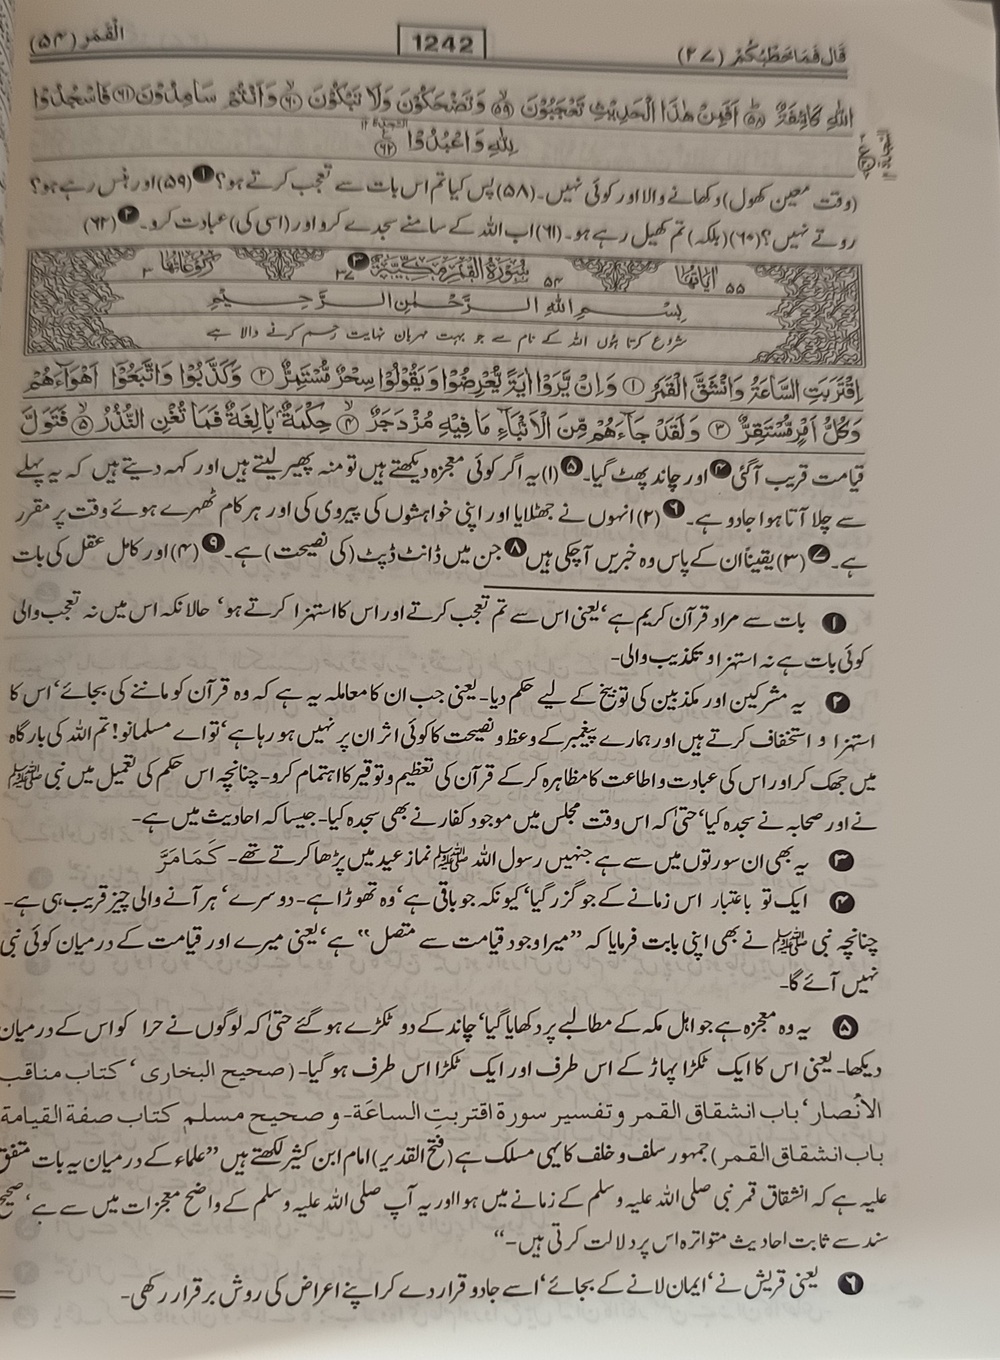 قَالَ فَمَا خَطْبُكُمْ (۲۷)
1242
الْقَمَر (۵۴)
اللّٰهِ كَاشِفَةٌ ﴿۵۸﴾ اَفَمِنْ هٰذَا الْحَدِيْثِ تَعْجَبُوْنَ ﴿۵۹﴾ وَتَضْحَكُوْنَ وَلَا تَبْكُوْنَ ﴿۶۰﴾ وَاَنْتُمْ سَامِدُوْنَ ﴿۶۱﴾ فَاسْجُدُوْا
لِلّٰهِ وَاعْبُدُوْا ﴿۶۲﴾ السجدة ۱۲
(وقت معین کھول) دکھانے والا اور کوئی نہیں۔ (۵۸) پس کیا تم اس بات سے تعجب کرتے ہو؟ ۱ (۵۹) اور ہنس رہے ہو؟
روتے نہیں؟ (۶۰) (بلکہ) تم کھیل رہے ہو۔ (۶۱) اب اللہ کے سامنے سجدے کرو اور (اسی کی) عبادت کرو۔ ۲ (۶۲)
۵۵ اٰيَاتُهَا ۵۴ سُوْرَةُ الْقَمَرِ مَكِّيَّةٌ ۳ ۳۷ رُكُوْعَاتُهَا ۳
بِسْمِ اللّٰهِ الرَّحْمٰنِ الرَّحِيْمِ
شروع کرتا ہوں اللہ کے نام سے جو بہت مہربان نہایت رحم کرنے والا ہے
اِقْتَرَبَتِ السَّاعَةُ وَانْشَقَّ الْقَمَرُ ﴿۱﴾ وَاِنْ يَّرَوْا اٰيَةً يُّعْرِضُوْا وَيَقُوْلُوْا سِحْرٌ مُّسْتَمِرٌّ ﴿۲﴾ وَكَذَّبُوْا وَاتَّبَعُوْٓا اَهْوَآءَهُمْ
وَكُلُّ اَمْرٍ مُّسْتَقِرٌّ ﴿۳﴾ وَلَقَدْ جَآءَهُمْ مِّنَ الْاَنْۢبَآءِ مَا فِيْهِ مُزْدَجَرٌ ﴿۴﴾ حِكْمَةٌۢ بَالِغَةٌ فَمَا تُغْنِ النُّذُرُ ﴿۵﴾ فَتَوَلَّ
قیامت قریب آگئی ۴ اور چاند پھٹ گیا۔ ۵ (۱) یہ اگر کوئی معجزہ دیکھتے ہیں تو منہ پھیر لیتے ہیں اور کہہ دیتے ہیں کہ یہ پہلے
سے چلا آتا ہوا جادو ہے۔ ۶ (۲) انہوں نے جھٹلایا اور اپنی خواہشوں کی پیروی کی اور ہر کام ٹھہرے ہوئے وقت پر مقرر
ہے۔ ۷ (۳) یقیناً ان کے پاس وہ خبریں آچکی ہیں ۸ جن میں ڈانٹ ڈپٹ (کی نصیحت) ہے۔ ۹ (۴) اور کامل عقل کی بات
۱ بات سے مراد قرآن کریم ہے‘ یعنی اس سے تم تعجب کرتے اور اس کا استہزا کرتے ہو‘ حالانکہ اس میں نہ تعجب والی
کوئی بات ہے نہ استہزا و تکذیب والی-
۲ یہ مشرکین اور مکذبین کی توبیخ کے لیے حکم دیا- یعنی جب ان کا معاملہ یہ ہے کہ وہ قرآن کو ماننے کی بجائے‘ اس کا
استہزا و استخفاف کرتے ہیں اور ہمارے پیغمبر کے وعظ و نصیحت کا کوئی اثر ان پر نہیں ہو رہا ہے‘ تو اے مسلمانو! تم اللہ کی بارگاہ
میں جھک کر اور اس کی عبادت و اطاعت کا مظاہرہ کر کے قرآن کی تعظیم و توقیر کا اہتمام کرو- چنانچہ اس حکم کی تعمیل میں نبی ﷺ
نے اور صحابہ نے سجدہ کیا‘ حتیٰ کہ اس وقت مجلس میں موجود کفار نے بھی سجدہ کیا- جیسا کہ احادیث میں ہے-
۳ یہ بھی ان سورتوں میں سے ہے جنہیں رسول اللہ ﷺ نماز عید میں پڑھا کرتے تھے- كَمَا مَرَّ
۴ ایک تو باعتبار اس زمانے کے جو گزر گیا‘ کیونکہ جو باقی ہے‘ وہ تھوڑا ہے- دوسرے‘ ہر آنے والی چیز قریب ہی ہے-
چنانچہ نبی ﷺ نے بھی اپنی بابت فرمایا کہ ”میرا وجود قیامت سے متصل“ ہے‘ یعنی میرے اور قیامت کے درمیان کوئی نبی
نہیں آئے گا-
۵ یہ وہ معجزہ ہے جو اہل مکہ کے مطالبے پر دکھایا گیا‘ چاند کے دو ٹکڑے ہو گئے حتیٰ کہ لوگوں نے حرا کو اس کے درمیان
دیکھا- یعنی اس کا ایک ٹکڑا پہاڑ کے اس طرف اور ایک ٹکڑا اس طرف ہو گیا- (صحیح البخاری‘ کتاب مناقب
الأنصار‘ باب انشقاق القمر وتفسیر سورة اقتربتِ الساعَة- و صحیح مسلم کتاب صفة القیامة
باب انشقاق القمر) جمہور سلف و خلف کا یہی مسلک ہے (فتح القدیر) امام ابن کثیر لکھتے ہیں ”علماء کے درمیان یہ بات متفق
علیہ ہے کہ انشقاق قمر نبی صلی اللہ علیہ وسلم کے زمانے میں ہوا اور یہ آپ صلی اللہ علیہ وسلم کے واضح معجزات میں سے ہے‘ صحیح
سند سے ثابت احادیث متواترہ اس پر دلالت کرتی ہیں-“
۶ یعنی قریش نے‘ ایمان لانے کے بجائے‘ اسے جادو قرار دے کر اپنے اعراض کی روش برقرار رکھی-